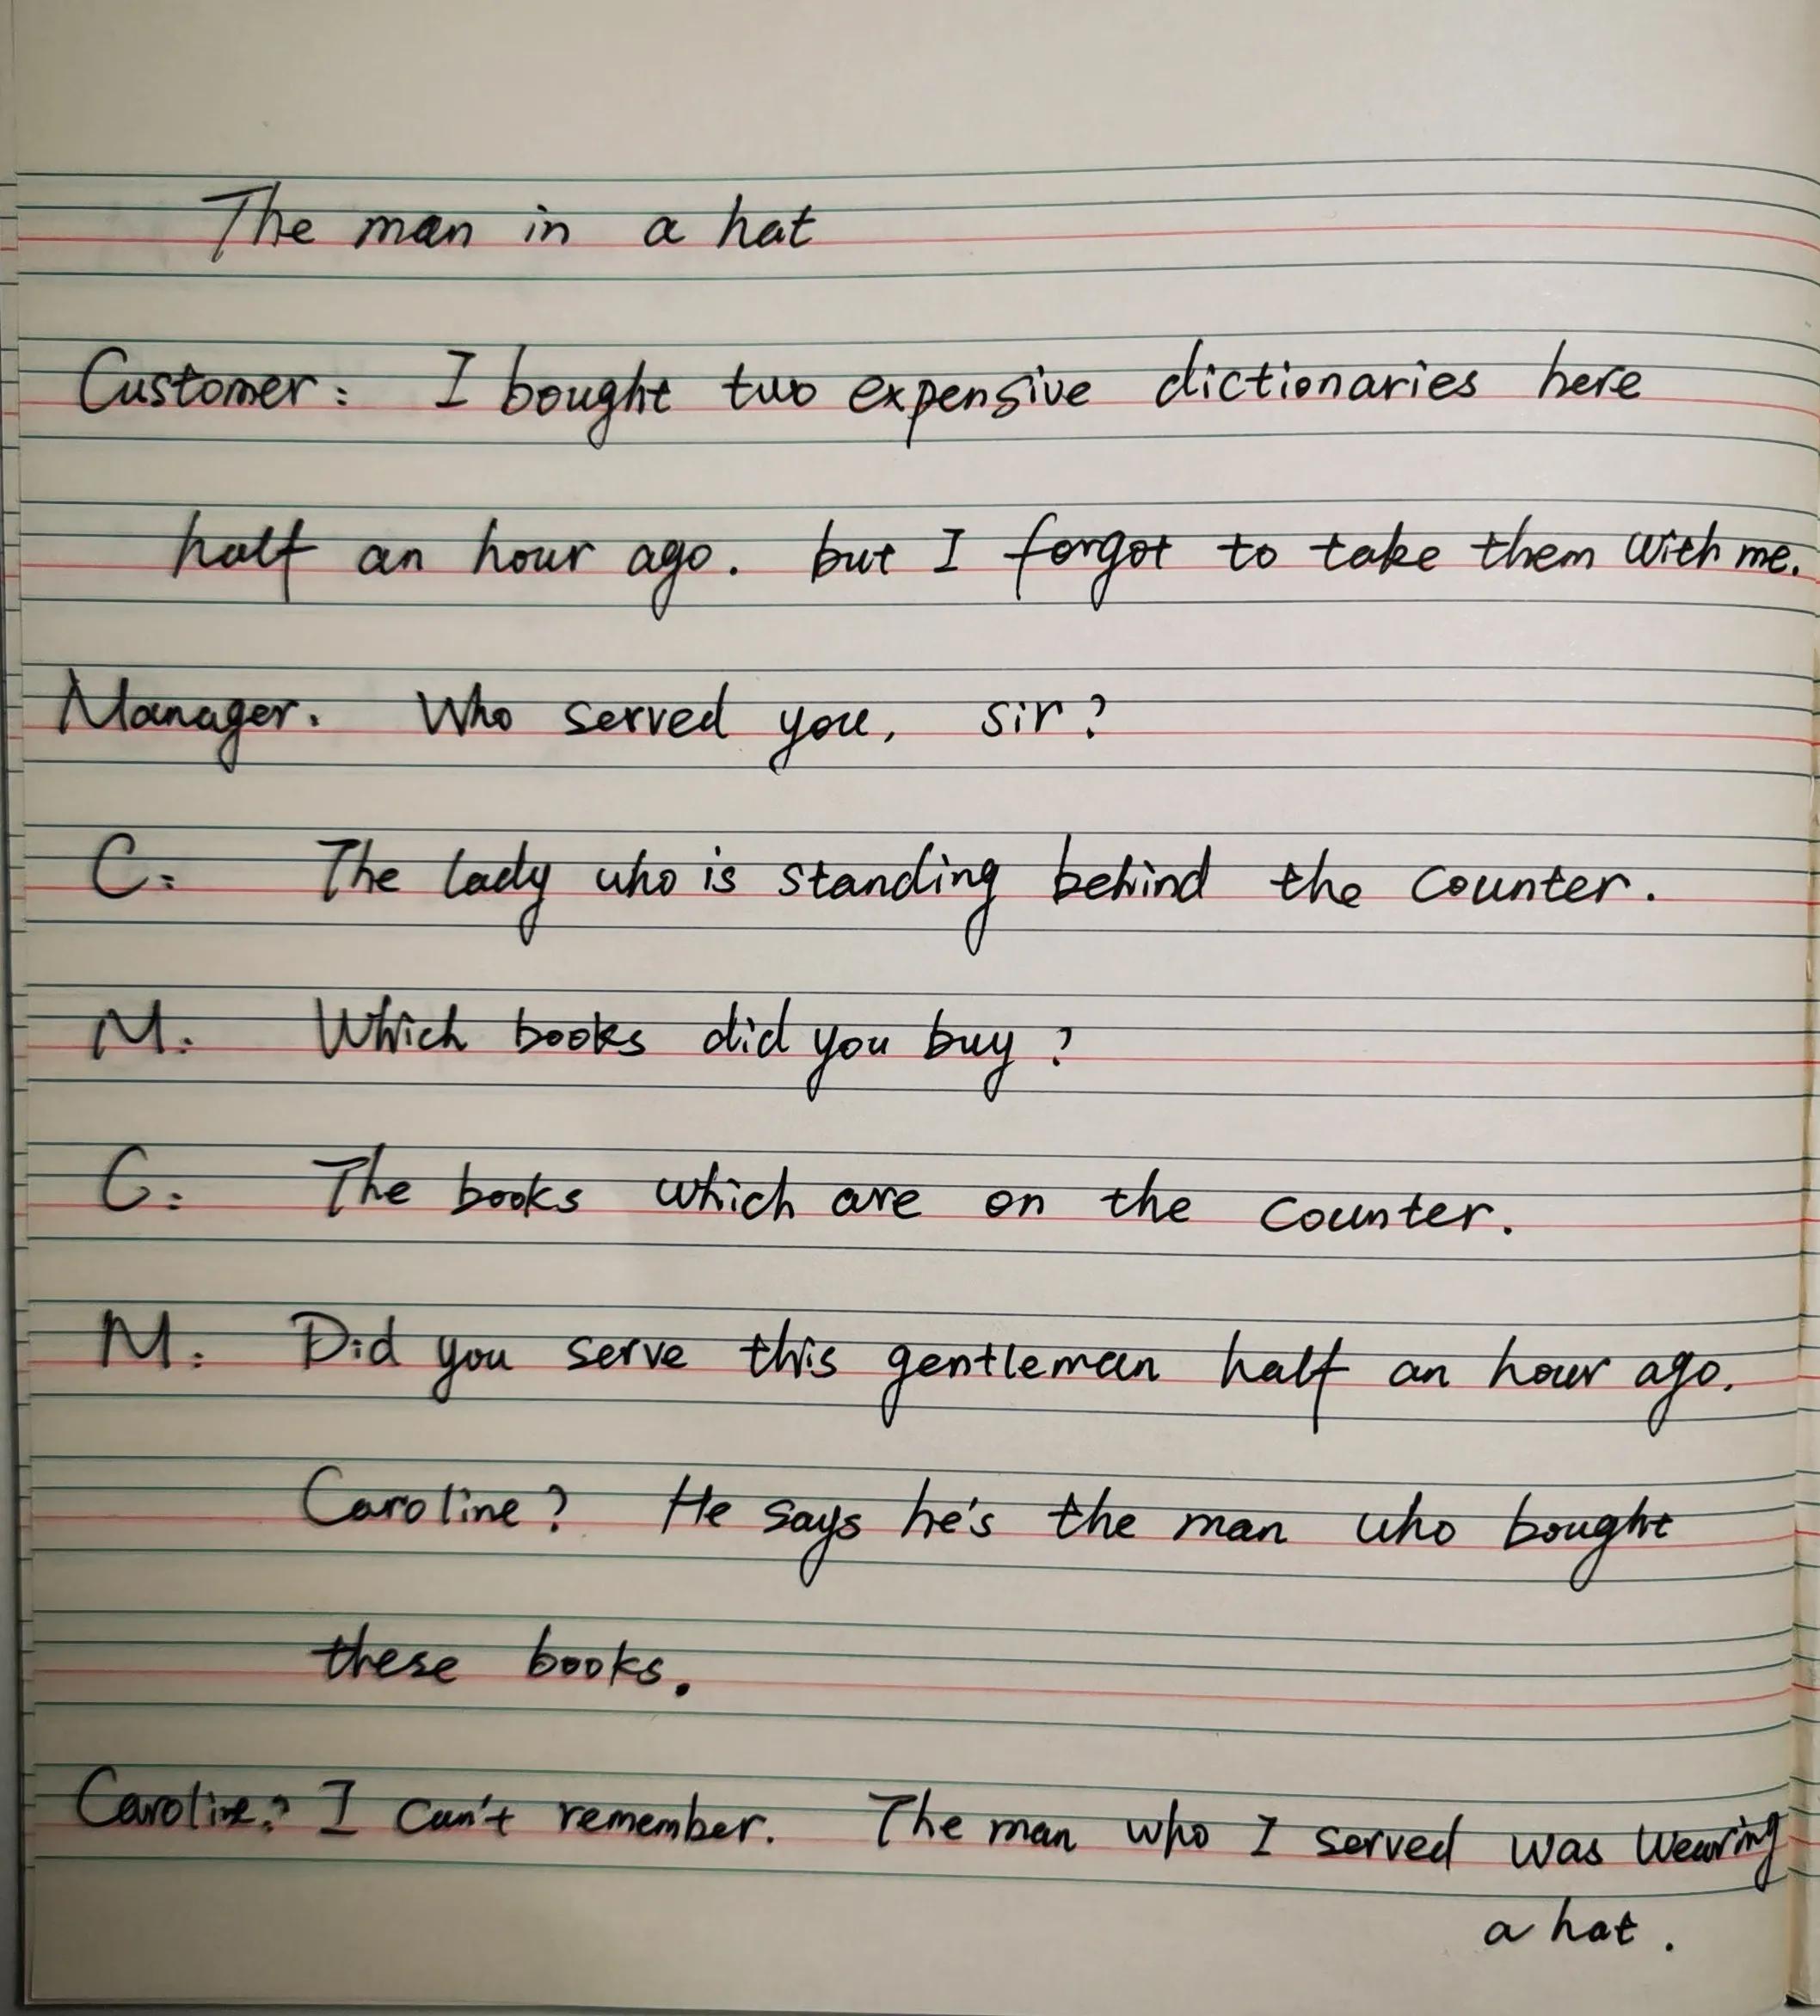 The man in a hat
Customer: I bought two expensive dictionaries here
half an hour ago. but I forgot to take them with me.
Manager. Who served you, sir?
C: The lady who is standing behind the counter.
M: Which books did you buy?
C: The books which are on the counter.
M: Did you serve this gentleman half an hour ago.
Caroline? He says he's the man who bought
these books.
Caroline: I can't remember. The man who I served was wearing
a hat.